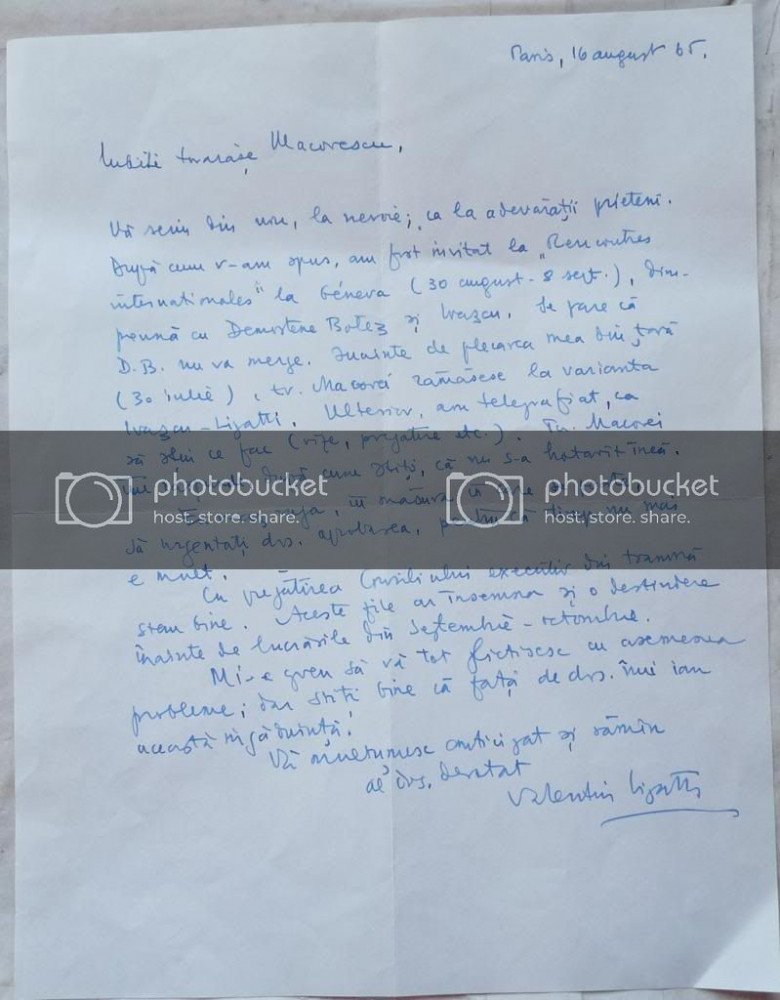 Paris, 16 august 65.
Iubite tovarășe Macovescu,
Vă scriu din nou, la nevoie; ca la adevărații prieteni.
După cum v-am spus, am fost invitat la "Rencontres
internationales" la Geneva (30 august - 8 sept.), dim-
preună cu Demostene Botez și Ivașcu. Se pare că
D.B. nu va merge. Înainte de plecarea mea din țară
(30 iulie), tv. Macovei rămăsese la varianta
Ivașcu-Lipatti. Ulterior, am telegrafiat, ca
să știu ce fac (vize, pregătire etc.). Tv. Macovei
după cum știți, că nu s-a hotărît încă.
în măsura
photobucket photobucket
host. store. share. host. store. share.
să urgentați dvs. aprobarea, pentru că timp nu mai
e mult.
Cu pregătirea Consiliului executiv din toamnă
stau bine. Aceste zile ar însemna și o destindere
înainte de lucrările din septembrie - octombrie.
Mi-e greu să vă tot cu asemenea
probleme; dar știți bine că față de dvs. îmi iau
această îngăduință.
Vă mulțumesc anticipat și rămîn
al dvs. devotat
Valentin Lipatti